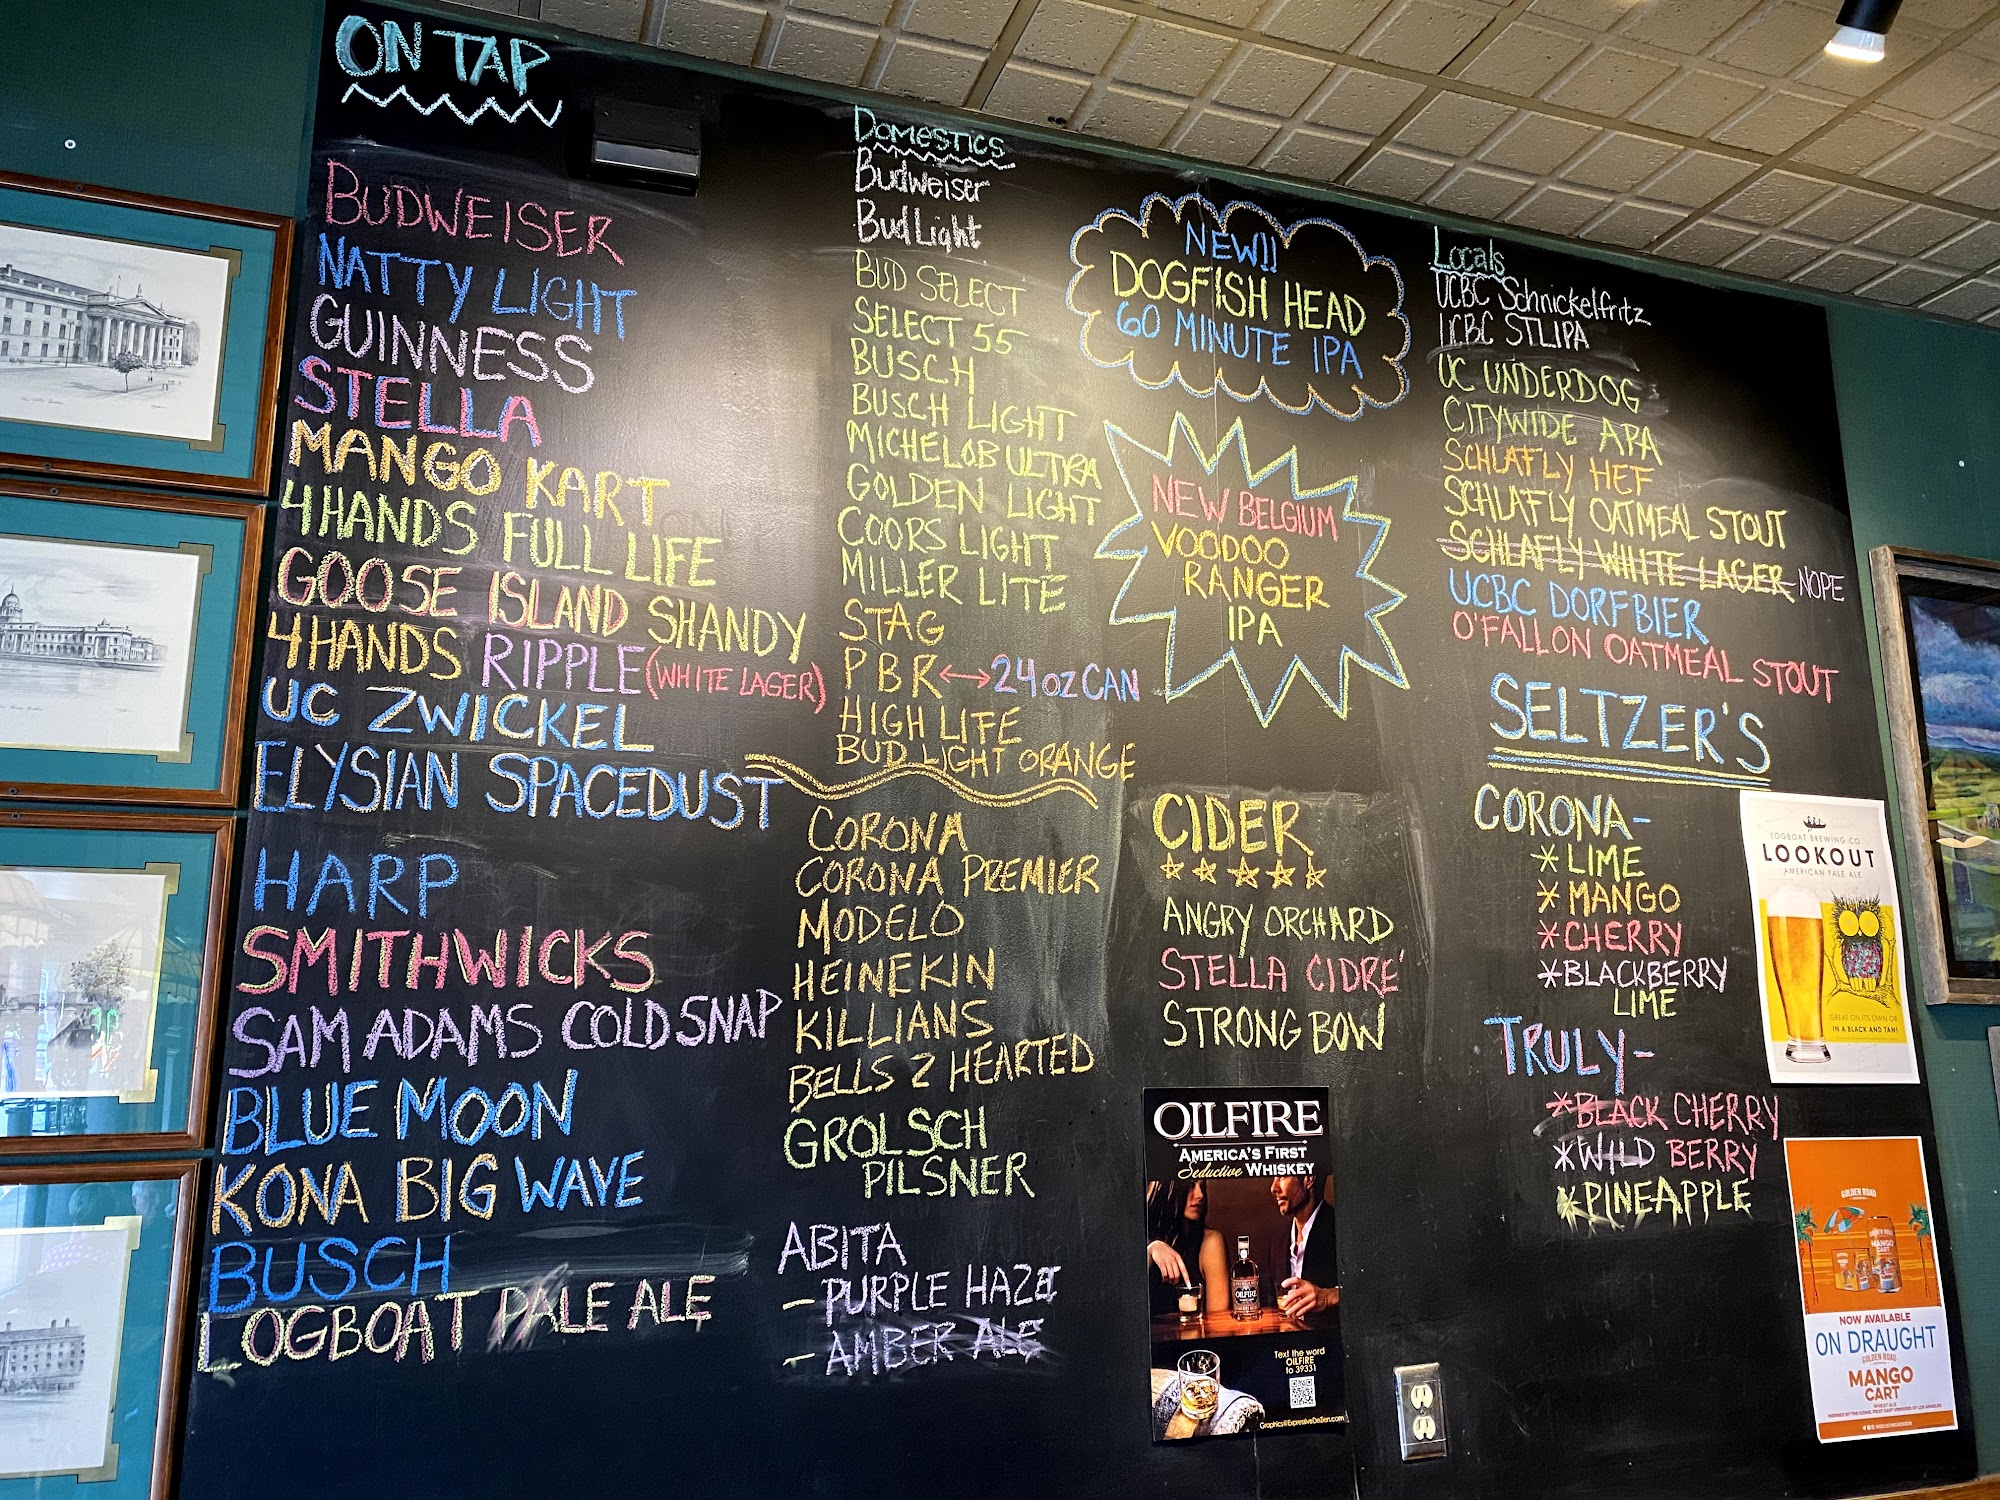 ON TAP
BUDWEISER
NATTY LIGHT
GUINNESS
STELLA
MANGO KART
4 HANDS FULL LIFE
GOOSE ISLAND SHANDY
4 HANDS RIPPLE (WHITE LAGER)
UC ZWICKEL
ELYSIAN SPACEDUST
HARP
SMITHWICKS
SAM ADAMS COLD SNAP
BLUE MOON
KONA BIG WAVE
BUSCH
LOGBOAT PALE ALE
Domestics
Budweiser
Bud Light
BUD SELECT
SELECT 55
BUSCH
BUSCH LIGHT
MICHELOB ULTRA
GOLDEN LIGHT
COORS LIGHT
MILLER LITE
STAG
PBR ↔ 24 oz CAN
HIGH LIFE
BUD LIGHT ORANGE
CORONA
CORONA PREMIER
MODELO
HEINEKIN
KILLIANS
BELLS 2 HEARTED
GROLSCH
PILSNER
ABITA
- PURPLE HAZE
- AMBER ALE
NEW!!
DOGFISH HEAD
60 MINUTE IPA
NEW BELGIUM
VOODOO
RANGER
IPA
CIDER
ANGRY ORCHARD
STELLA CIDRE'
STRONG BOW
OILFIRE
AMERICA'S FIRST
Seductive WHISKEY
OILFIRE
Text the word
OILFIRE
to 39331
Graphics@ExpressiveDeZien.com
Locals
UCBC Schnickelfritz
UCBC STLIPA
UC UNDERDOG
CITYWIDE APA
SCHLAFLY HEF
SCHLAFLY OATMEAL STOUT
SCHLAFLY WHITE LAGER NOPE
UCBC DORFBIER
O'FALLON OATMEAL STOUT
SELTZER'S
CORONA-
*LIME
*MANGO
*CHERRY
*BLACKBERRY
LIME
TRULY-
*BLACK CHERRY
*WILD BERRY
*PINEAPPLE
LOGBOAT BREWING CO.
LOOKOUT
AMERICAN PALE ALE
GREAT ON ITS OWN OR
IN A BLACK AND TAN!
GOLDEN ROAD
MANGO
CART
NOW AVAILABLE
ON DRAUGHT
GOLDEN ROAD
MANGO
CART
WHEAT ALE